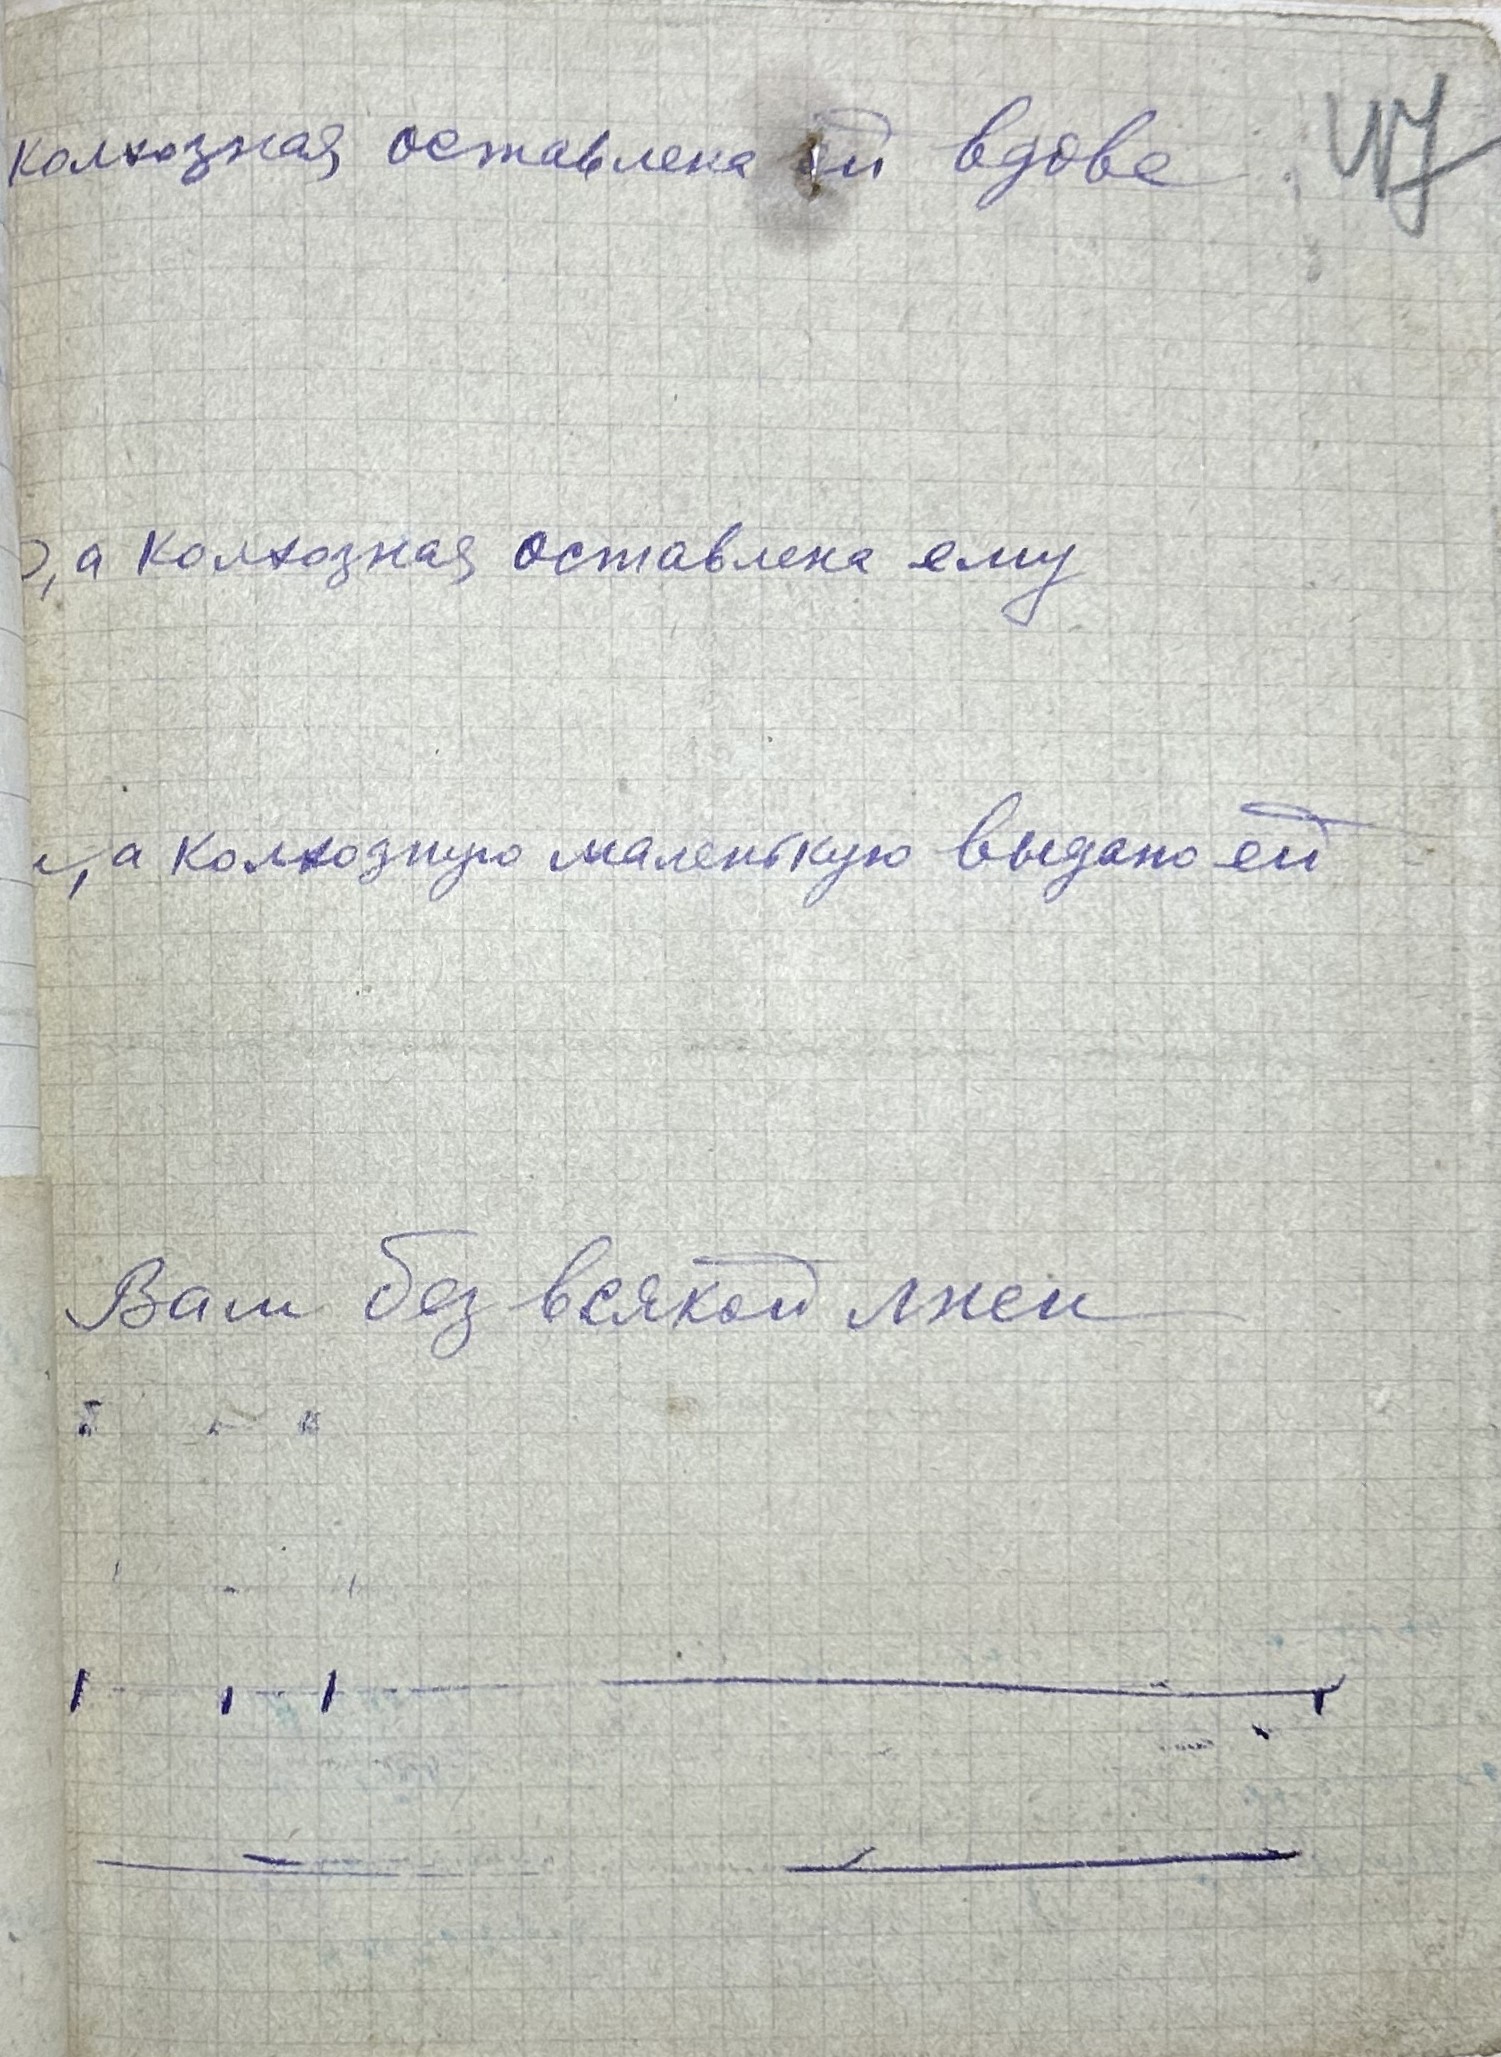 колхозная оставлена ей вдове
, а колхозная оставлена ему
, а колхозную маленькую выдано ей
Вам без всякой лжеи